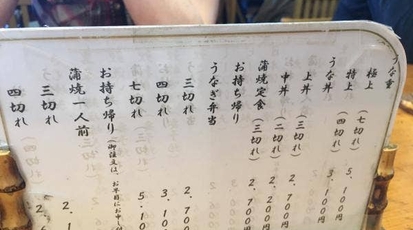 うな重
極上（七切れ）５、１００円
特上（四切れ）３、１００円
うな丼
上丼（三切れ）２、７００円
中丼（二切れ）２、２００円
蒲焼定食（三切れ）２、７００円
お持ち帰り
うなぎ弁当
三切れ ２、７
四切れ ３、１０
七切れ ５、１０
お持ち帰り（御注文は、お早目にお申し付
蒲焼一人前
三切れ
四切れ